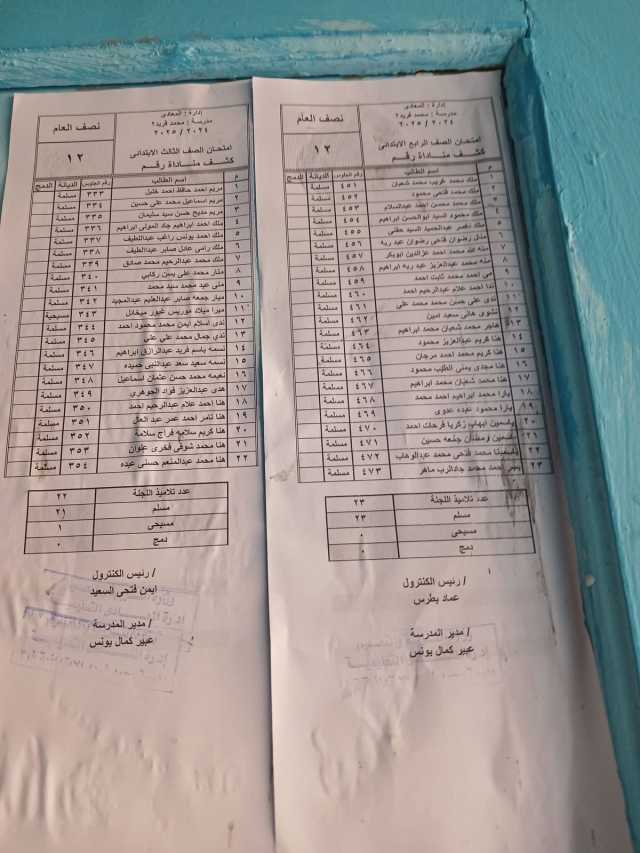 إدارة : المعادى
مدرسة : محمد فريد٢
٢٠٢٤ / ٢٠٢٥
نصف العام
امتحان الصف الرابع الابتدائى
كشف مناداة رقم
١٢
م اسم الطالب رقم الجلوس الديانة الدمج
١ ملك محمد غريب محمد شعبان ٤٥١ مسلمة
٢ ملك محمد فتحى محمود ٤٥٢ مسلمة
٣ ملك محمد محسن احمد عبدالسلام ٤٥٣ مسلمة
٤ ملك محمود السيد ابوالحسن ابراهيم ٤٥٤ مسلمة
٥ ملك ناصر عبدالحميد السيد حفنى ٤٥٥ مسلمة
٦ منال رضوان فتحى رضوان عبد ربه ٤٥٦ مسلمة
٧ منه الله محمد احمد عزالدين ابوبكر ٤٥٧ مسلمة
٨ منه محمد عبدالعزيز عبد ربه ابراهيم ٤٥٨ مسلمة
٩ مى احمد محمد ثابت احمد ٤٥٩ مسلمة
١٠ ندا احمد علام عبدالرحيم احمد ٤٦٠ مسلمة
١١ ندى على حسن محمد محمد على ٤٦١ مسلمة
١٢ نشوى هانى سعيد امين ٤٦٢ مسلمة
١٣ هاجر محمد شعبان محمد ابراهيم ٤٦٣ مسلمة
١٤ هنا كريم عبدالعزيز محمود ٤٦٤ مسلمة
١٥ هنا كريم محمد احمد مرجان ٤٦٥ مسلمة
١٦ هنا مجدى يمنى الطيب محمود ٤٦٦ مسلمة
١٧ هنا محمد شعبان محمد ابراهيم ٤٦٧ مسلمة
١٨ يارا محمد ابراهيم احمد محمد ٤٦٨ مسلمة
١٩ يارا محمود عبده عدوى ٤٦٩ مسلمة
٢٠ ياسمين ايهاب زكريا فرحات احمد ٤٧٠ مسلمة
٢١ ياسمين رمضان جمعه حسين ٤٧١ مسلمة
٢٢ ياسمينا محمد فتحى محمد عبدالوهاب ٤٧٢ مسلمة
٢٣ احمد محمد جادالرب ماهر ٤٧٣ مسلمة
عدد تلاميذ اللجنة ٢٣
مسلم ٢٣
مسيحى ٠
دمج ٠
رئيس الكنترول /
عماد بطرس
مدير المدرسة /
عبير كمال يونس
إدارة : المعادى
مدرسة : محمد فريد٢
٢٠٢٤ / ٢٠٢٥
نصف العام
امتحان الصف الثالث الابتدائى
كشف مناداة رقم
١٢
م اسم الطالب رقم الجلوس الديانة الدمج
١ مريم احمد حافظ احمد خليل ٣٣٣ مسلمة
٢ مريم اسماعيل محمد على حسين ٣٣٤ مسلمة
٣ مريم مديح حسن سيد سليمان ٣٣٥ مسلمة
٤ ملك احمد ابراهيم جاد المولى ابراهيم ٣٣٦ مسلمة
٥ ملك احمد يونس راغب عبداللطيف ٣٣٧ مسلمة
٦ ملك رامى عادل صابر عبداللطيف ٣٣٨ مسلمة
٧ ملك محمد عبدالرحيم محمد صادق ٣٣٩ مسلمة
٨ منار محمد على يمن ركابي ٣٤٠ مسلمة
٩ منى عيد محمد سيد محمد ٣٤١ مسلمة
١٠ ميار جمعه صابر عبدالعليم عبدالمجيد ٣٤٢ مسلمة
١١ ميرا ميلاد موريس غبور ميخائل ٣٤٣ مسيحية
١٢ ندى اسلام ايمن محمد محمود احمد ٣٤٤ مسلمة
١٣ ندى جمال محمد علي علي ٣٤٥ مسلمة
١٤ نسمه باسم فريد عبدالرازق ابراهيم ٣٤٦ مسلمة
١٥ نسمه سعيد سعد عبدالنبى حميده ٣٤٧ مسلمة
١٦ نعيمه محمد حسن عثمان اسماعيل ٣٤٨ مسلمة
١٧ هدى عبدالعزيز فؤاد الجوهري ٣٤٩ مسلمة
١٨ هنا احمد علام عبدالرحيم احمد ٣٥٠ مسلمة
١٩ هنا تامر احمد عمر عبد العال ٣٥١ مسلمة
٢٠ هنا كريم سلامه فراج سلامة ٣٥٢ مسلمة
٢١ هنا محمد شوقى فخرى علوان ٣٥٣ مسلمة
٢٢ هنا محمد عبدالمنعم حسنى عبده ٣٥٤ مسلمة
عدد تلاميذ اللجنة ٢٢
مسلم ٢١
مسيحى ١
دمج ٠
رئيس الكنترول /
ايمن فتحى السعيد
مدير المدرسة /
عبير كمال يونس